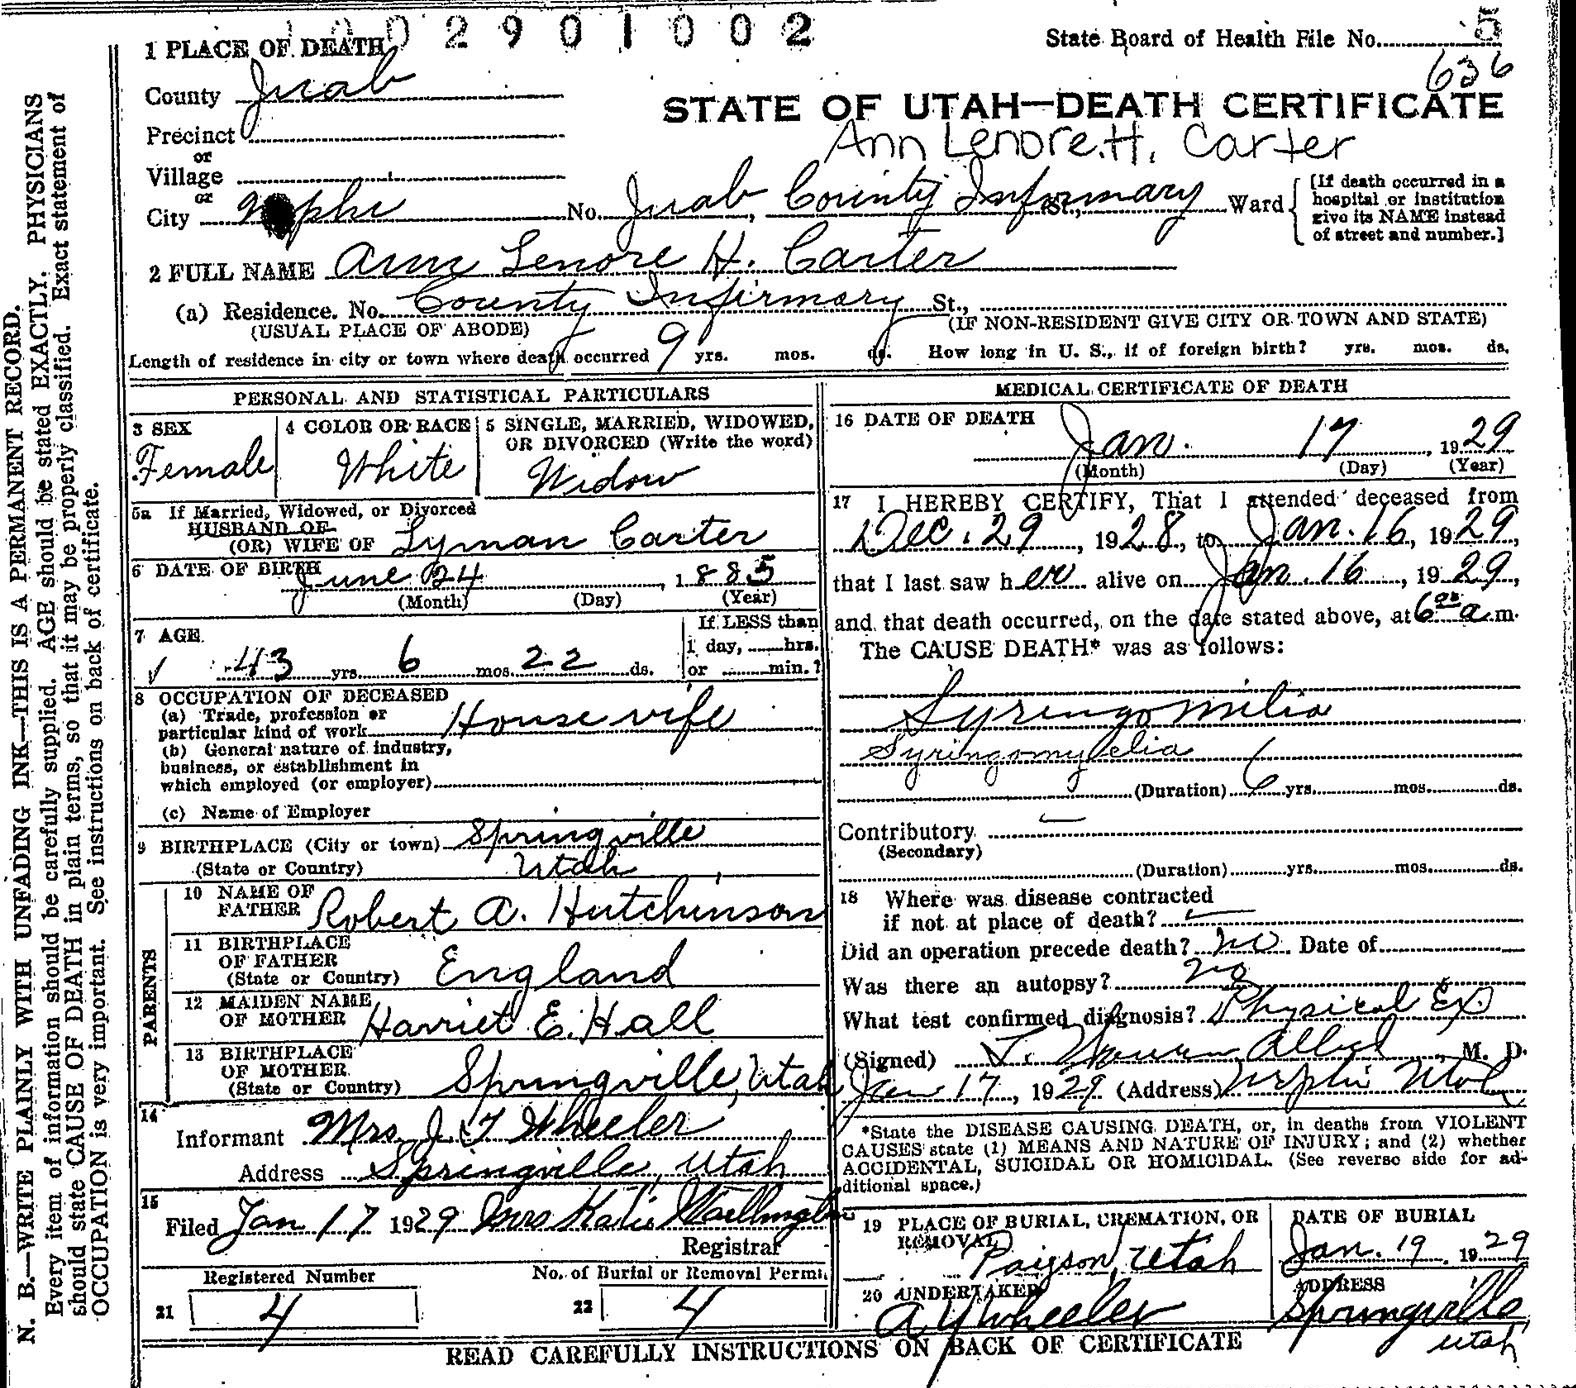 1002901002
State Board of Health File No. 5
636
1 PLACE OF DEATH
County Juab
STATE OF UTAH—DEATH CERTIFICATE
Precinct
or
Ann Lenore. H. Carter
Village
or
City Nephi No. Juab, County Infirmary St., Ward
[If death occurred in a
hospital or institution
give its NAME instead
of street and number.]
2 FULL NAME Ann Lenore H. Carter
(a) Residence. No. County Infirmary St.,
(USUAL PLACE OF ABODE) (IF NON-RESIDENT GIVE CITY OR TOWN AND STATE)
Length of residence in city or town where death occurred 9 yrs. mos. ds. How long in U. S., if of foreign birth? yrs. mos. ds.
PERSONAL AND STATISTICAL PARTICULARS
3 SEX
Female
4 COLOR OR RACE
White
5 SINGLE, MARRIED, WIDOWED,
OR DIVORCED (Write the word)
Widow
5a If Married, Widowed, or Divorced
HUSBAND OF
(OR) WIFE OF Lyman Carter
6 DATE OF BIRTH June 24, 1885
(Month) (Day) (Year)
7 AGE
43 yrs. 6 mos. 22 ds.
If LESS than
1 day, hrs.
or min.?
8 OCCUPATION OF DECEASED
(a) Trade, profession or
particular kind of work Housewife
(b) General nature of industry,
business, or establishment in
which employed (or employer)
(c) Name of Employer
9 BIRTHPLACE (City or town) Springville
(State or Country) Utah
PARENTS
10 NAME OF
FATHER Robert A. Hutchinson
11 BIRTHPLACE
OF FATHER
(State or Country) England
12 MAIDEN NAME
OF MOTHER Harriet E. Hall
13 BIRTHPLACE
OF MOTHER
(State or Country) Springville, Utah
14
Informant Mrs. J. T. Wheeler
Address Springville, Utah
15
Filed Jan 17 1929 Mrs Katie
Registrar
Registered Number
21 4
No. of Burial or Removal Permit
22 4
MEDICAL CERTIFICATE OF DEATH
16 DATE OF DEATH
Jan. 17, 1929
(Month) (Day) (Year)
17 I HEREBY CERTIFY, That I attended deceased from
Dec. 29, 1928, to Jan. 16, 1929,
that I last saw her alive on Jan. 16, 1929,
and that death occurred, on the date stated above, at 6 a.m.
The CAUSE DEATH* was as follows:
Syringomilia
Syringomyelia
(Duration) 6 yrs. mos. ds.
Contributory
(Secondary)
(Duration) yrs. mos. ds.
18 Where was disease contracted
if not at place of death?
Did an operation precede death? no Date of
Was there an autopsy? no
What test confirmed diagnosis? Physical Ex.
(Signed) M. D.
Jan 17, 1929 (Address) Nephi Utah
*State the DISEASE CAUSING DEATH, or, in deaths from VIOLENT
CAUSES state (1) MEANS AND NATURE OF INJURY; and (2) whether
ACCIDENTAL, SUICIDAL OR HOMICIDAL. (See reverse side for ad-
ditional space.)
19 PLACE OF BURIAL, CREMATION, OR
REMOVAL
Payson, Utah
DATE OF BURIAL
Jan. 19 1929
20 UNDERTAKER
A Y Wheeler
ADDRESS
Springville,
Utah
READ CAREFULLY INSTRUCTIONS ON BACK OF CERTIFICATE
N. B.—WRITE PLAINLY WITH UNFADING INK—THIS IS A PERMANENT RECORD.
Every item of information should be carefully supplied. AGE should be stated EXACTLY. PHYSICIANS
should state CAUSE OF DEATH in plain terms, so that it may be properly classified. Exact statement of
OCCUPATION is very important. See instructions on back of certificate.